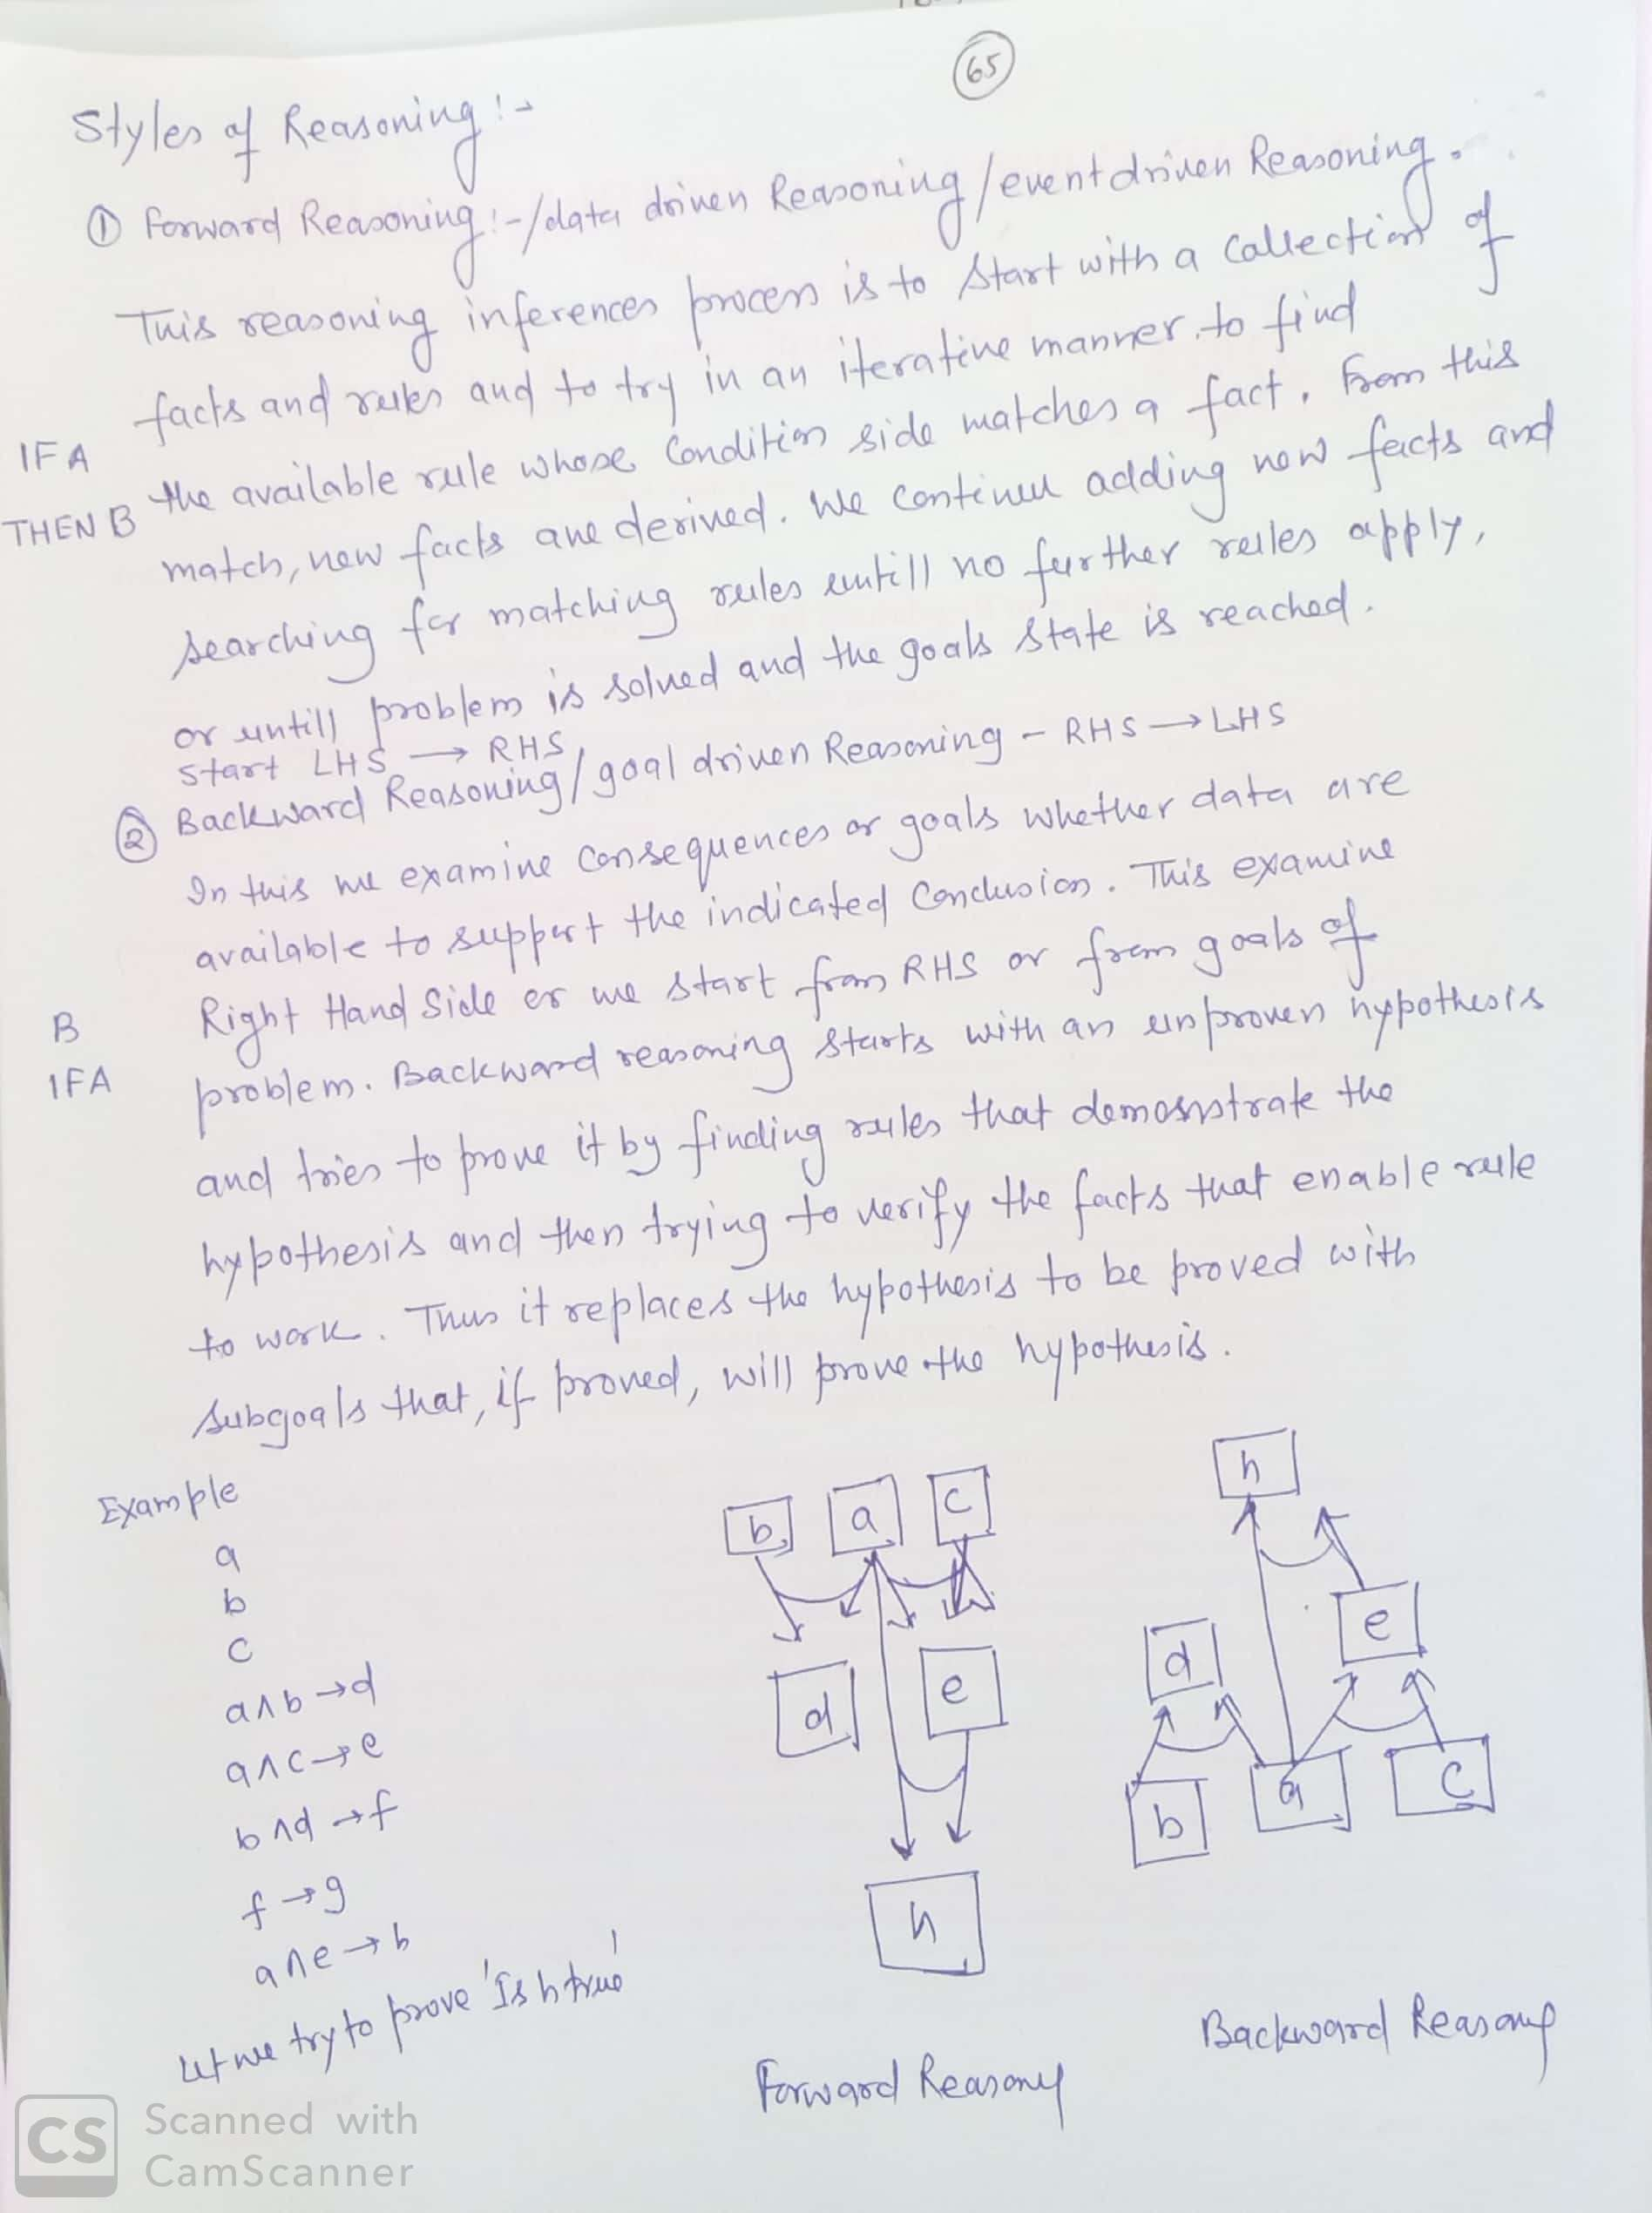 65
Styles of Reasoning :-
① Forward Reasoning :-/data driven Reasoning/event driven Reasoning.
This reasoning inferences process is to start with a collection of
facts and rules and to try in an iterative manner to find
IF A
the available rule whose condition side matches a fact. From this
THEN B
match, new facts are derived. We continue adding new facts and
searching for matching rules untill no further rules apply,
or untill problem is solved and the goals state is reached.
Start LHS → RHS
② Backward Reasoning/goal driven Reasoning - RHS → LHS
In this we examine consequences or goals whether data are
available to support the indicated conclusion. This examine
Right Hand Side or we start from RHS or from goals of
B
problem. Backward reasoning starts with an unproven hypothesis
IF A
and tries to prove it by finding rules that demonstrate the
hypothesis and then trying to verify the facts that enable rule
to work. Thus it replaces the hypothesis to be proved with
subgoals that, if proved, will prove the hypothesis.
Example
a
b
c
a∧b→d
a∧c→e
b∧d→f
f→g
a∧e→h
Let we try to prove 'Is h true'
b a c
d e
h
Forward Reasoning
h
e
d
b a c
Backward Reasoning
CS
Scanned with
CamScanner